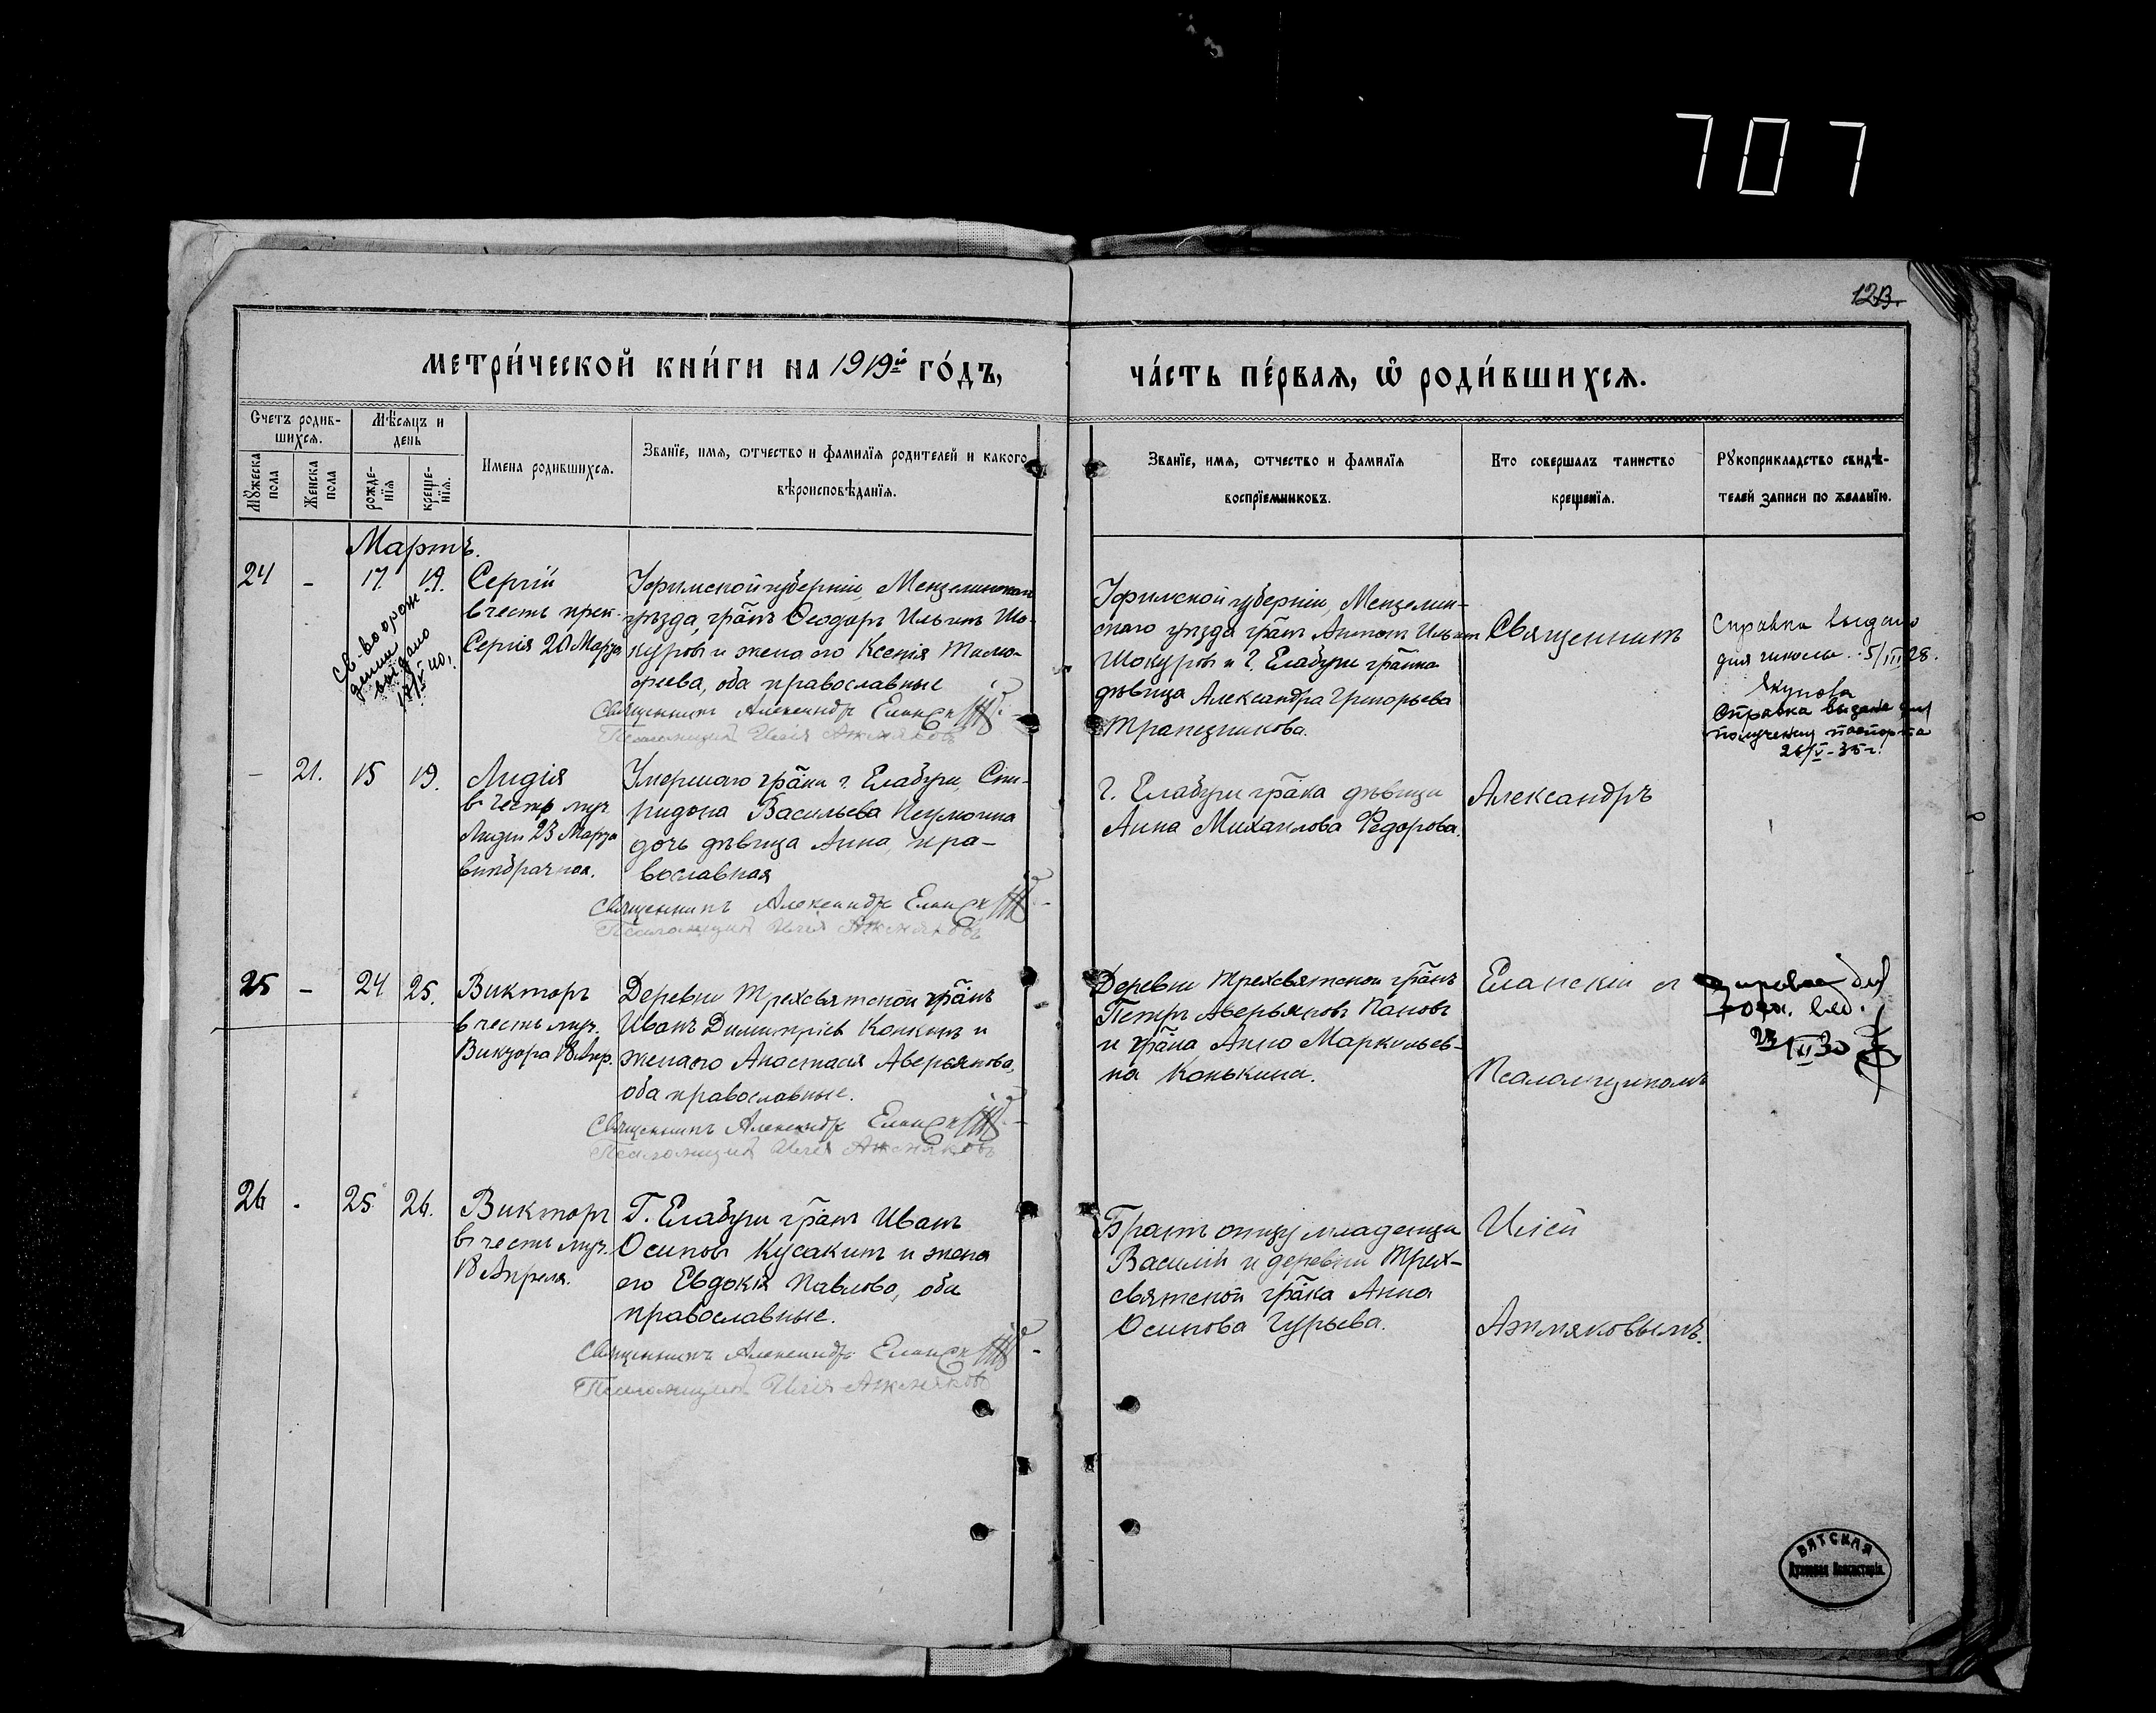 707
123.
метри́ческой кни́ги на 1919й го́дъ,
ча́сть пе́рвая, ѡ҆ роди́вшихся.
Счетъ родив-
шихся.
Мѣсяцъ и
день
Мꙋжеска
пола
Женска
пола
рожде-
нїя
креще-
нїя.
Имена родившихся.
Званїе, имя, ѡтчество и фамилїя родителей и какого
вѣроисповѣданїя.
Званїе, имя, ѡтчество и фамилїя
воспрїемниковъ.
Кто совершалъ таинство
крещенїя.
Рꙋкоприкладство свидѣ-
телей записи по желанїю.
Мартъ.
24 - 17 19.
Сергій
въ честь преп.
Сергія 20 Марта
Св-во о рож
дении
выдано
Уфимской губерніи, Мензелинскаго
уѣзда, гр̃нъ Ѳеодоръ Ильинъ Шо-
куровъ и жена его Ксенія Тимо-
феева, оба православные
Священникъ Александръ Еланскій
Псаломщикъ Илія Ажмяковъ
Уфимской губерніи, Мензелин-
скаго уѣзда гр̃нъ Антонъ Ильинъ
Шокуровъ и г. Елабуги гр̃нка
дѣвица Александра Григорьева
Трапезникова.
Священникъ
Справка выдана
для школы. 5/III 28.
Якупова
Справка выдана для
получения паспорта
26/V-35 г.
- 21. 15 19.
Лидія
въ честь муч.
Лидіи 23 Марта
внѣбрачная.
Умершаго гр̃на г. Елабуги, Спи-
ридона Васильева
дочь дѣвица Анна, пра-
вославная
Священникъ Александръ Еланскій
Псаломщикъ Илія Ажмяковъ
г. Елабуги гр̃нка дѣвица
Анна Михаилова Федорова.
Александръ
25 - 24 25.
Викторъ
въ честь муч.
Виктора 18 Апр.
Деревни Трехсвятской гр̃нъ
Иванъ Димитріевъ Конкинъ и
жена его Анастасія Аверьянова,
оба православные.
Священникъ Александръ Еланскій
Псаломщикъ Илія Ажмяковъ
Деревни Трехсвятской гр̃нъ
Петръ Аверьяновъ Пановъ
и гр̃нка Анна Маркильев-
на Конькина.
Еланскій съ
Псаломщикомъ
26 - 25 26.
Викторъ
въ честь муч.
18 Апреля.
Г. Елабуги гр̃нъ Иванъ
Осиповъ Кусакинъ и жена
его Евдокія Павлова, оба
православные.
Священникъ Александръ Еланскій
Псаломщикъ Илія Ажмяковъ
Братъ отцу младенца
Василій и деревни Трех-
святской гр̃нка Анна
Осипова Гурьева.
Иліей
Ажмяковымъ.
ВЯТСКАЯ
Духовная Консисторія.